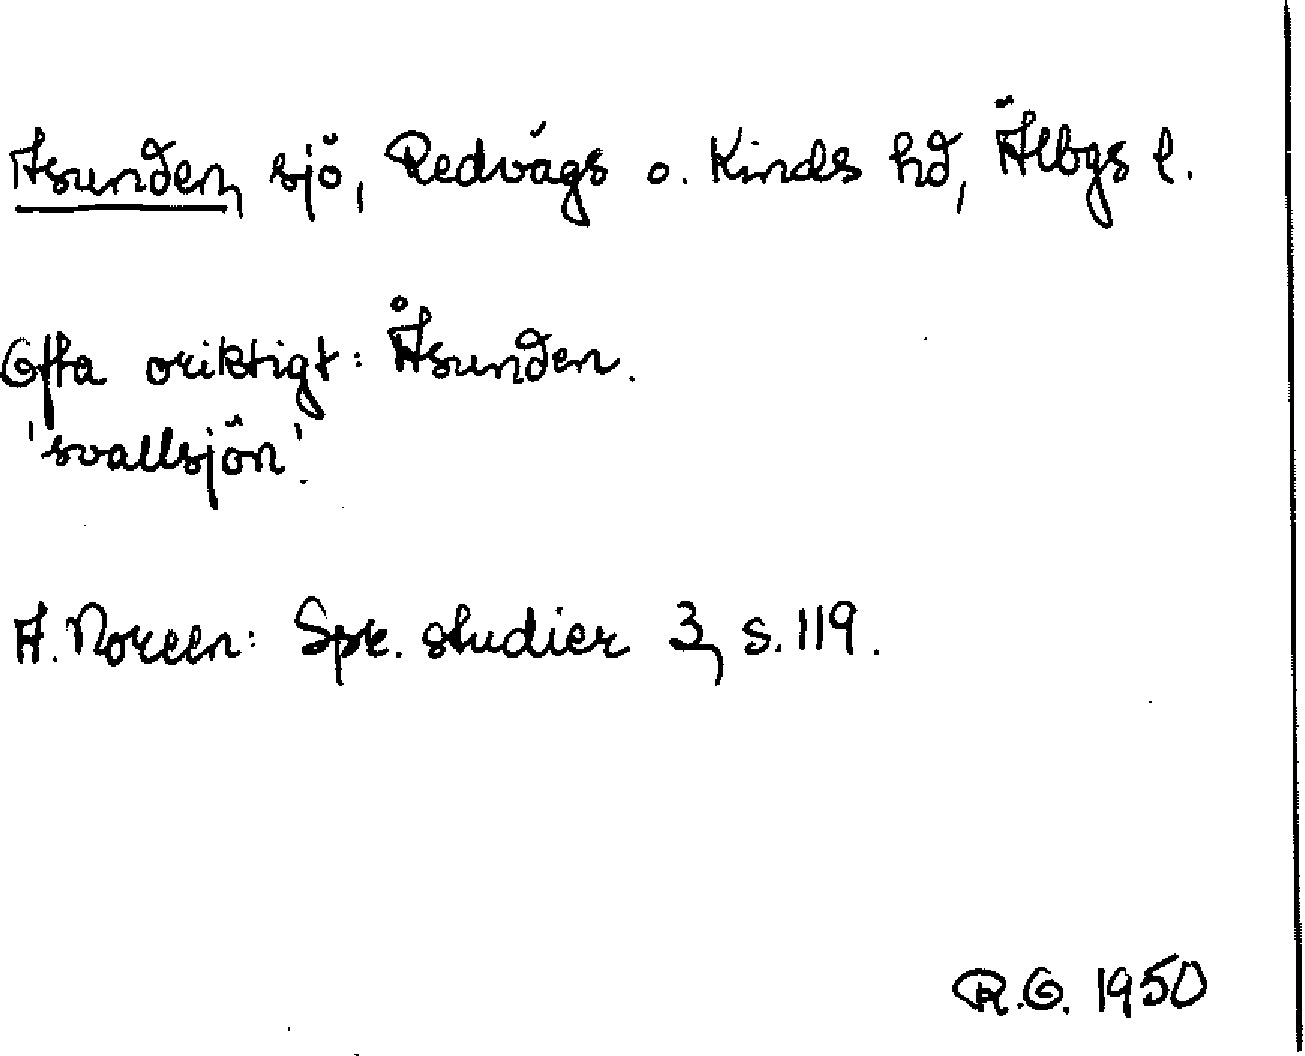 Asunden, sjö, Redvägs o. Kinds hd, Älbgs l.
Ofta oriktigt: Åsunden.
'svallsjön'.
A. Noreen: Spr. studier 3, s. 119.
R.G. 1950